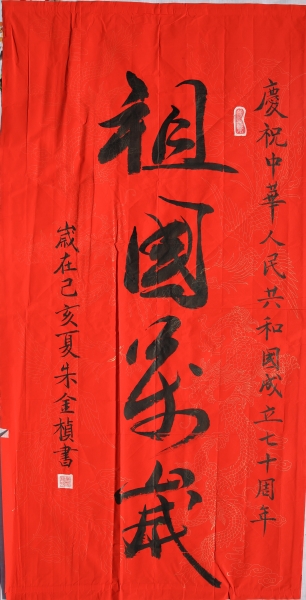 慶祝中華人民共和國成立七十周年
祖國萬歲
歲在己亥夏朱金楨書